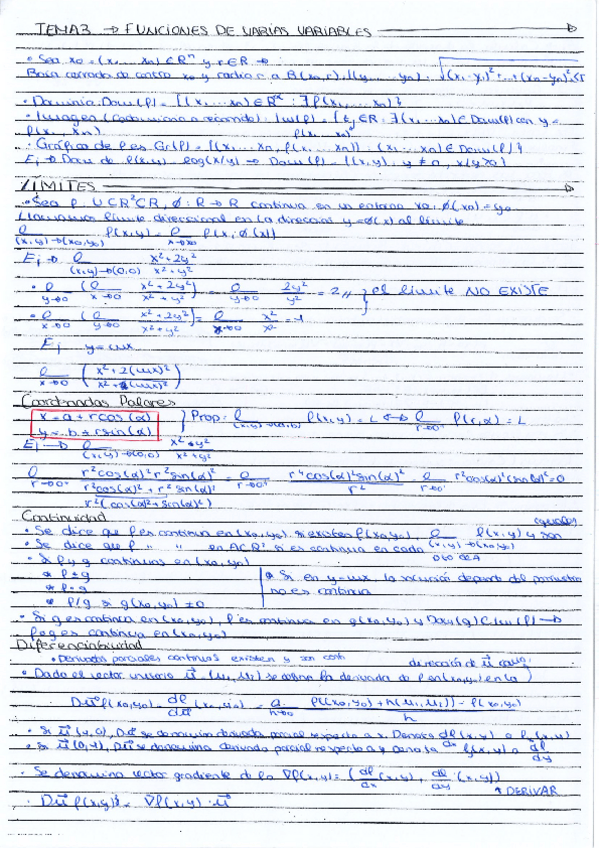 TEMA 3 → FUNCIONES DE VARIAS VARIABLES
• Sea x0 = (x1, ..., xn) ∈ Rⁿ y r ∈ R →
Bola cerrada de centro x0 y radio r a B(x0,r) = {(y1, ..., yn) : √(x1-y1)²+...+(xn-yn)² ≤ r
• Dominio Dom(f) = {(x1, ..., xn) ∈ Rⁿ : ∃ f(x1, ..., xn)}
• Imagen (Codominio o recorrido) Im(f) = {y ∈ R : ∃(x1, ..., xn) ∈ Dom(f) con y =
f(x1, ..., xn)
• Gráfica de f es Gr(f) = {(x1, ..., xn, f(x1, ..., xn)) : (x1, ..., xn) ∈ Dom(f)}
Ej → Dom de f(x,y) = log(x/y) → Dom(f) = {(x,y) : y ≠ 0, x/y > 0}
LÍMITES
• Sea f: U⊂R²⊂R, Ø: R → R continua en un entorno x0, Ø(x0) = y0
Llamamos límite direccional en la dirección y = Ø(x) al límite
l (x,y)→(x0,y0) f(x,y) = l x→x0 f(x, Ø(x))
Ej → l (x,y)→(0,0) x²+2y² / x²+y²
• l y→0 (l x→0 x²+2y² / x²+y²) = l y→0 2y²/y² = 2 // } el límite NO EXISTE
• l x→0 (l y→0 x²+2y² / x²+y²) = l x→0 x²/x² = 1
Ej y = mx
l x→0 (x²+2(mx)² / x²+(mx)²)
Coordenadas Polares
x = a + r cos(α) } Prop: l (x,y)→(a,b) f(x,y) = L ↔ l r→0⁺ f(r,α) = L
y = b + r sin(α)
Ej → l (x,y)→(0,0) x²·y² / x²+y²
l r→0⁺ r²cos(α)² r²sin(α)² / r²cos(α)² + r²sin(α)² = l r→0⁺ r⁴cos(α)²sin(α)² / r² = l r→0⁺ r²cos(α)²(sin(α))² = 0
r²(cos(α)²+sin(α)²)
Continuidad
• Se dice que f es continua en (x0,y0) si existen f(x0,y0), l (x,y)→(x0,y0) f(x,y) y son iguales
• Se dice que f " " en A⊂R² si es continua en cada
• Si f y g continuas en (x0,y0)
* f ± g
* f · g
* f/g si g(x0,y0) ≠ 0
* Si en y = mx, la solución depende del parámetro
no es continua
• Si g es continua en (x0,y0), f es continua en g(x0,y0) y Dom(g) ⊂ Im(f) →
f∘g es continua en (x0,y0)
Diferenciabilidad
• Derivadas parciales continuas existen y son cont
• Dado el vector unitario u = (u1, u2) se define la derivada de f en (x0,y0) en la dirección de u como:
Du f(x0,y0) = df/du (x0,y0) = l h→0 f((x0,y0) + h(u1,u2)) - f(x0,y0) / h
• Si u (1,0), Du se denomina derivada parcial respecto a x. Denota df/dx (x,y) o fx(x,y)
• Si u (0,1), Du se denomina derivada parcial respecto a y. Denota fy(x,y) o df/dy
• Se denomina vector gradiente de f a ∇f(x,y) = (df/dx (x,y), df/dy (x,y))
↑ DERIVAR
• Du f(x,y) = ∇f(x,y) · u